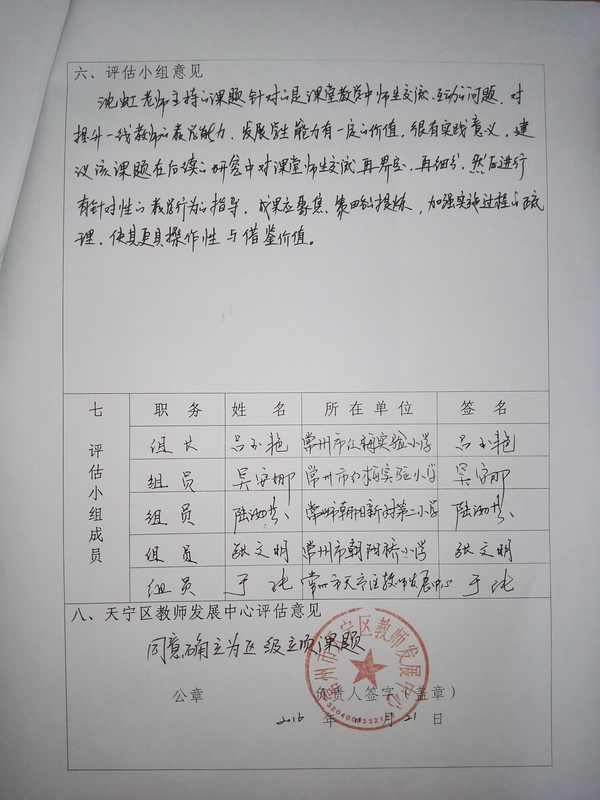 六、评估小组意见
沈虹老师主持的课题针对的是课堂教学中师生交流、互动的问题，对
提升一线教师的教学能力，发展学生能力有一定的价值，很有实践意义，建
议该课题在后续的研究中对课堂师生交流再界定、再细分，然后进行
有针对性的教学行为的指导，成果应聚焦、提炼，加强实施过程的梳
理，使其更具操作性与借鉴价值。
七 评估小组成员
职务 姓名 所在单位 签名
组长 吕小艳 常州市红梅实验小学 吕小艳
组员 吴安娜 常州市红梅实验小学 吴安娜
组员 陆 常州市朝阳新村第二小学 陆
组员 张文明 常州市朝阳桥小学 张文明
组员 于 常州市天宁区教师发展中心 于
八、天宁区教师发展中心评估意见
同意确立为区级立项课题
常州市天宁区教师发展中心
公章 负责人签字（盖章）
2016 年 月 21 日